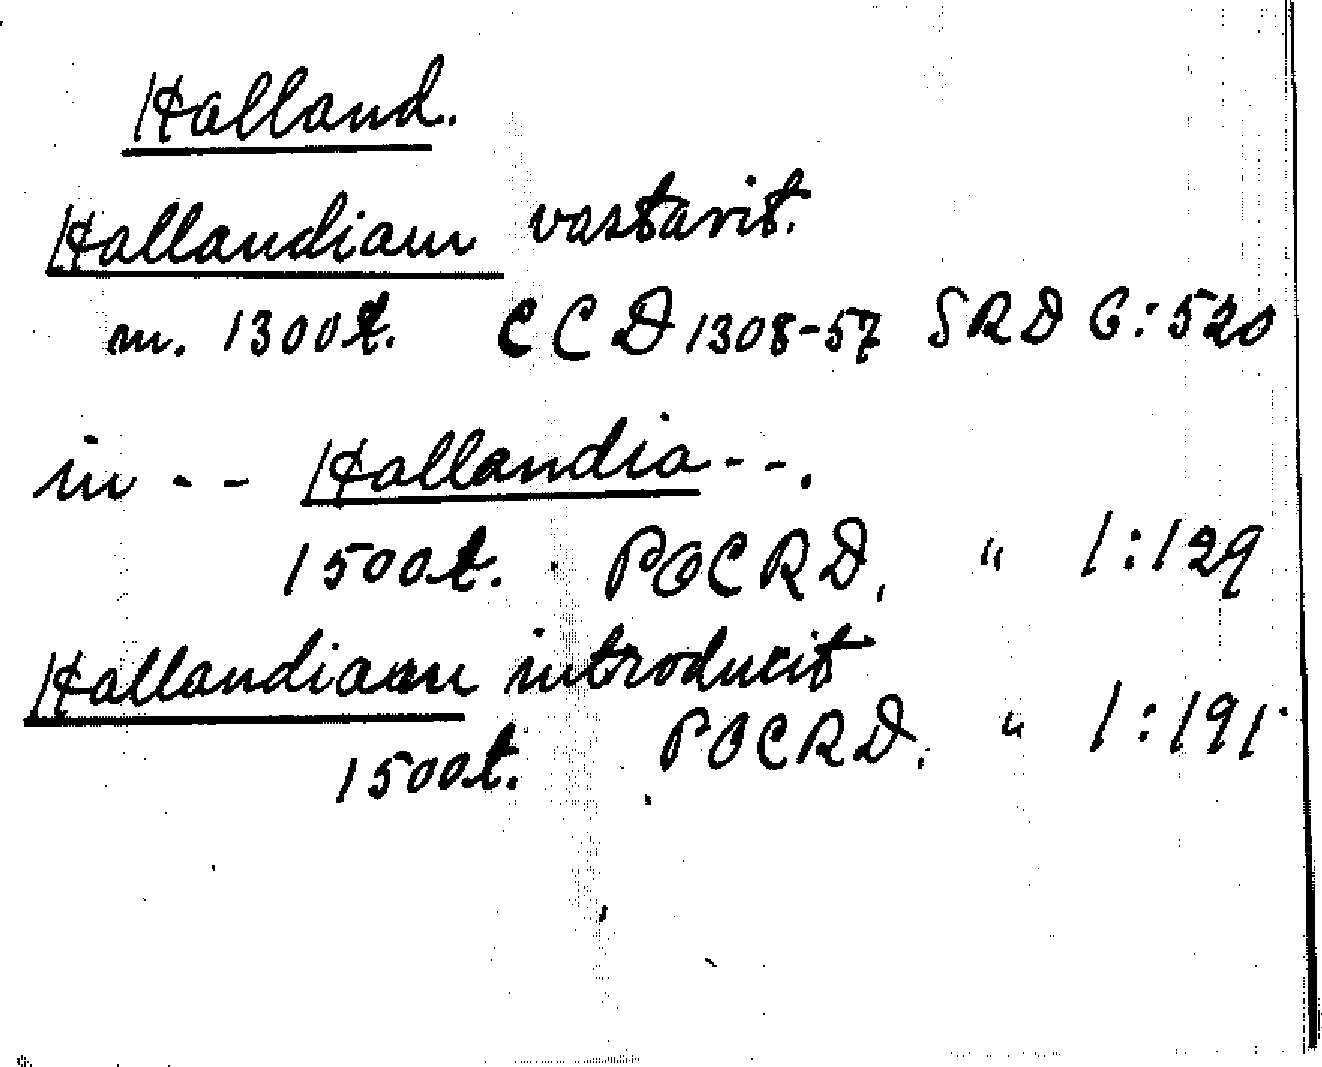 Halland.
Hallandiam vastavit.
m. 1300t. CCD 1308-57 SRD 6:520
in -- Hallandia --.
1500t. POCRD. " 1:129
Hallandiam introducit
1500t. POCRD. " 1:191